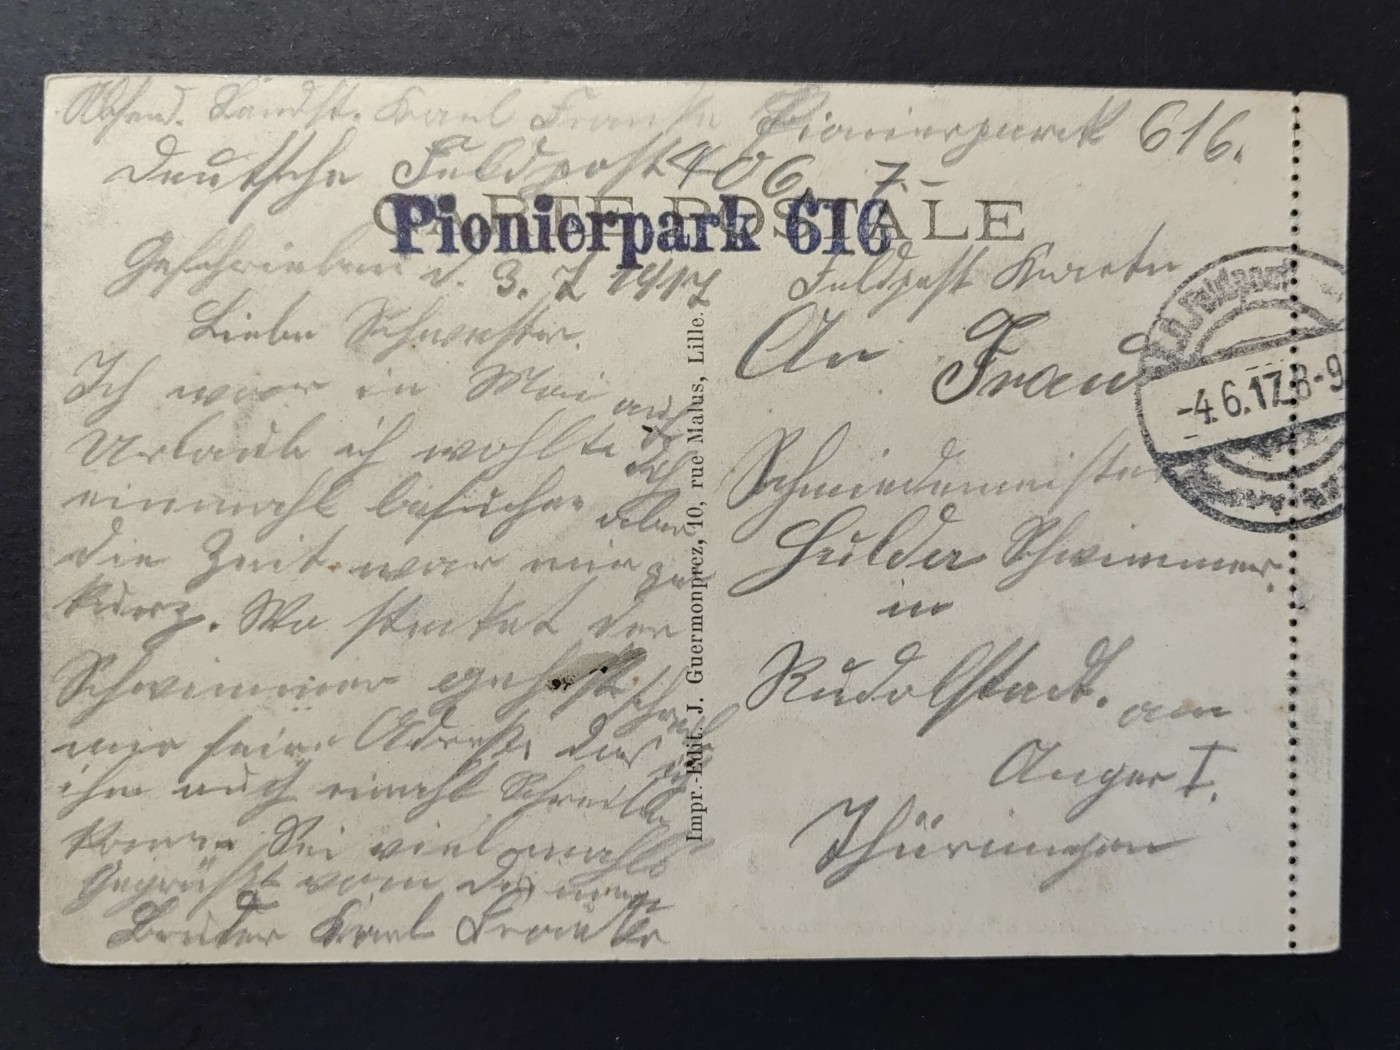 Absend. Landst. Karl Franke Pionierpark 616.
Deutsche Feldpost 406 7
CARTE POSTALE
Pionierpark 616
Geschrieben d. 3. 1917
Liebe Schwester.
Ich war in Mai auf
Urlaub ich wohlte
Dich
einmahl besuchen aber
die Zeit war mir zu
kurz. Wo stecket der
Schwimmer
schreib
mir seine Adresse das ich
ihn auch einmahl Schreiben
kann Sei vielmahls
Gegrüßt vom
Bruder Karl Franke
Impr.-Edit. J. Guermonprez, 10, rue Malus, Lille.
Feldpost Karte
An Frau
Schmiedemeister
Hulda Schwimmer.
in
Rudolstadt. am
Anger I.
Thüringen
Feldpost
-4.6.17.8-9